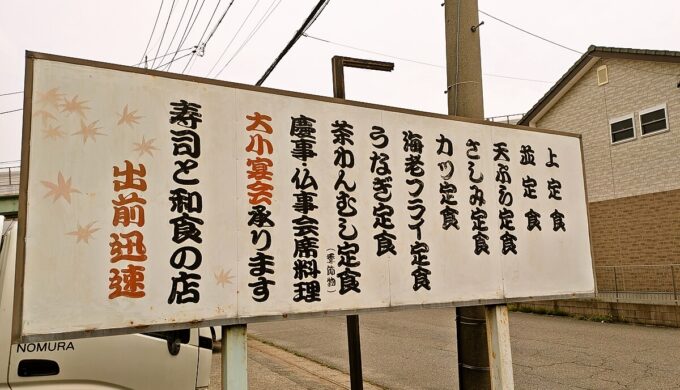 上定食
並定食
天ぷら定食
さしみ定食
カツ定食
海老フライ定食
うなぎ定食
茶わんむし定食
(季節物)
慶事・仏事会席料理
大小宴会承ります
寿司と和食の店
出前迅速
NOMURA